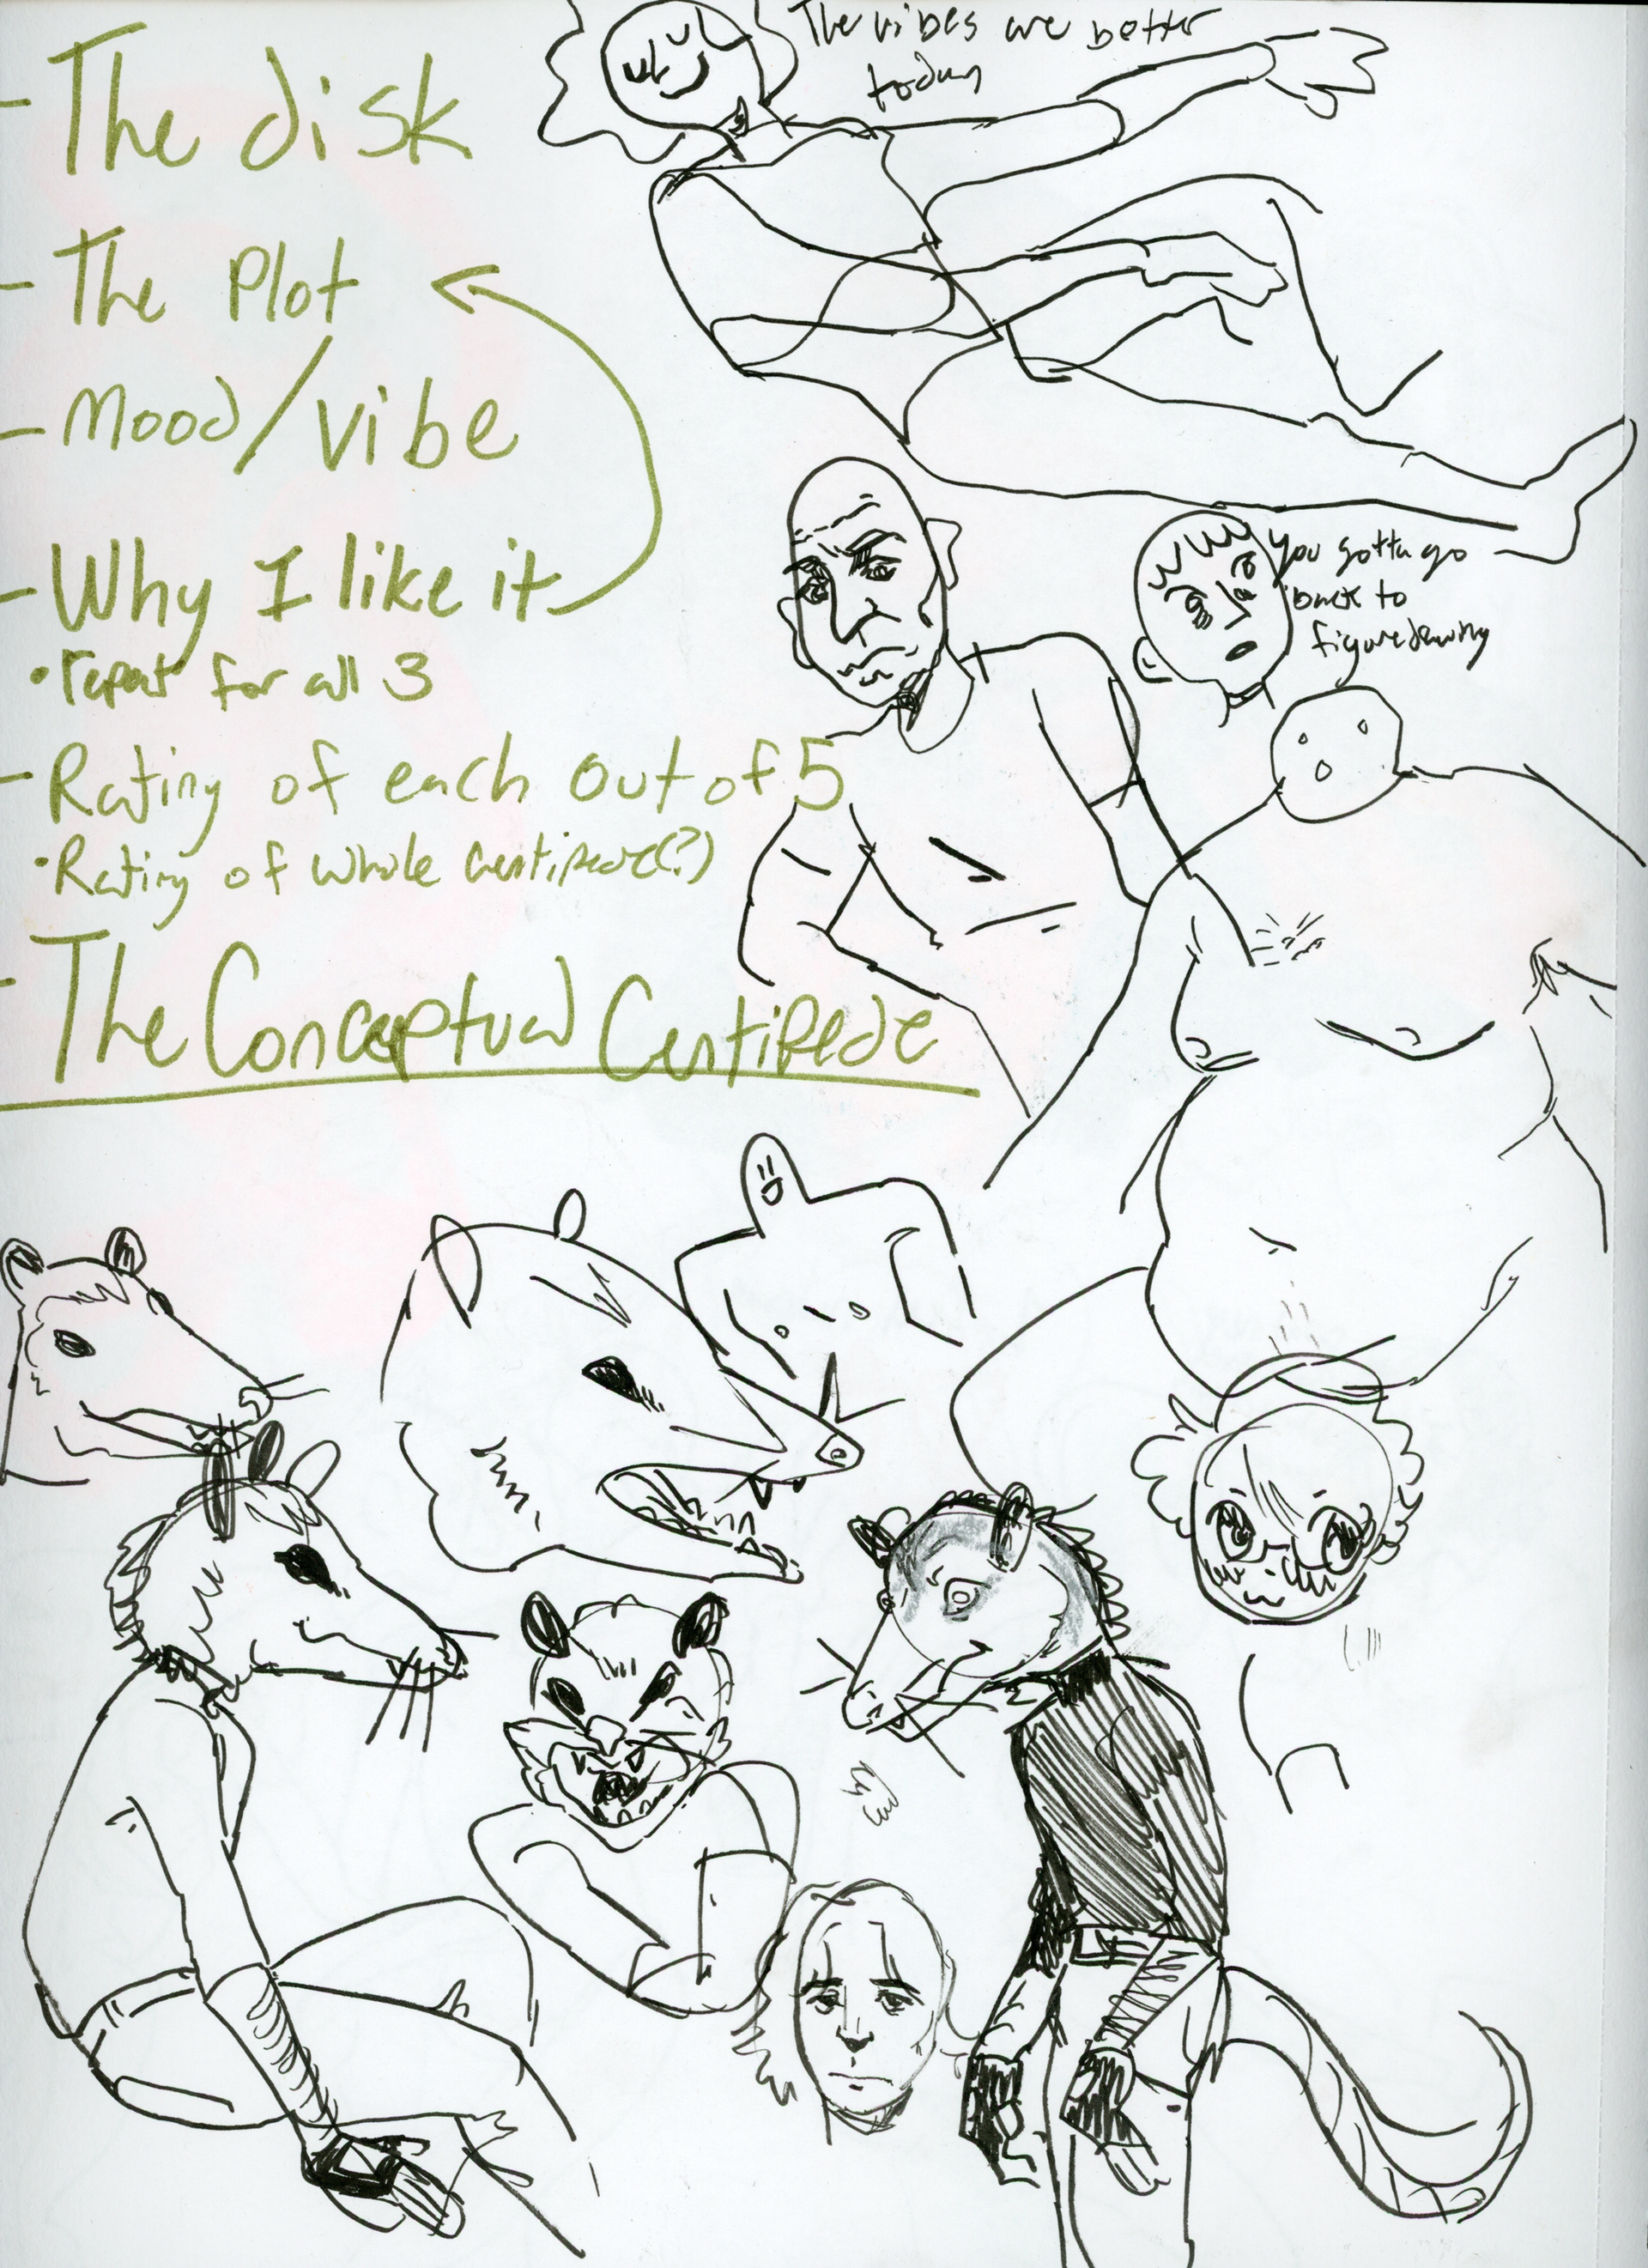 - The disk
- The Plot
- Mood/vibe
- Why I like it
• repeat for all 3
- Rating of each out of 5
• Rating of whole centipede(?)
- The Conceptual Centipede
The vibes are better
today
you gotta go
back to
figure drawing